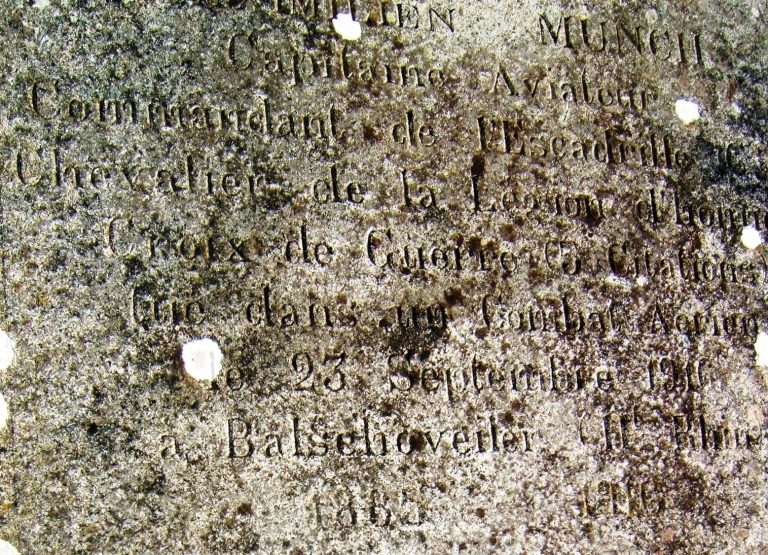 MILIEN MUNCH
Capitaine Aviateur
Commandant de l'Escadrille C
Chevalier de la Légion d'honne
Croix de Guerre (5 Citations)
tué dans un Combat Aérien
le 23 Septembre 1916
à Balschoveiler (Ht Rhin
1916